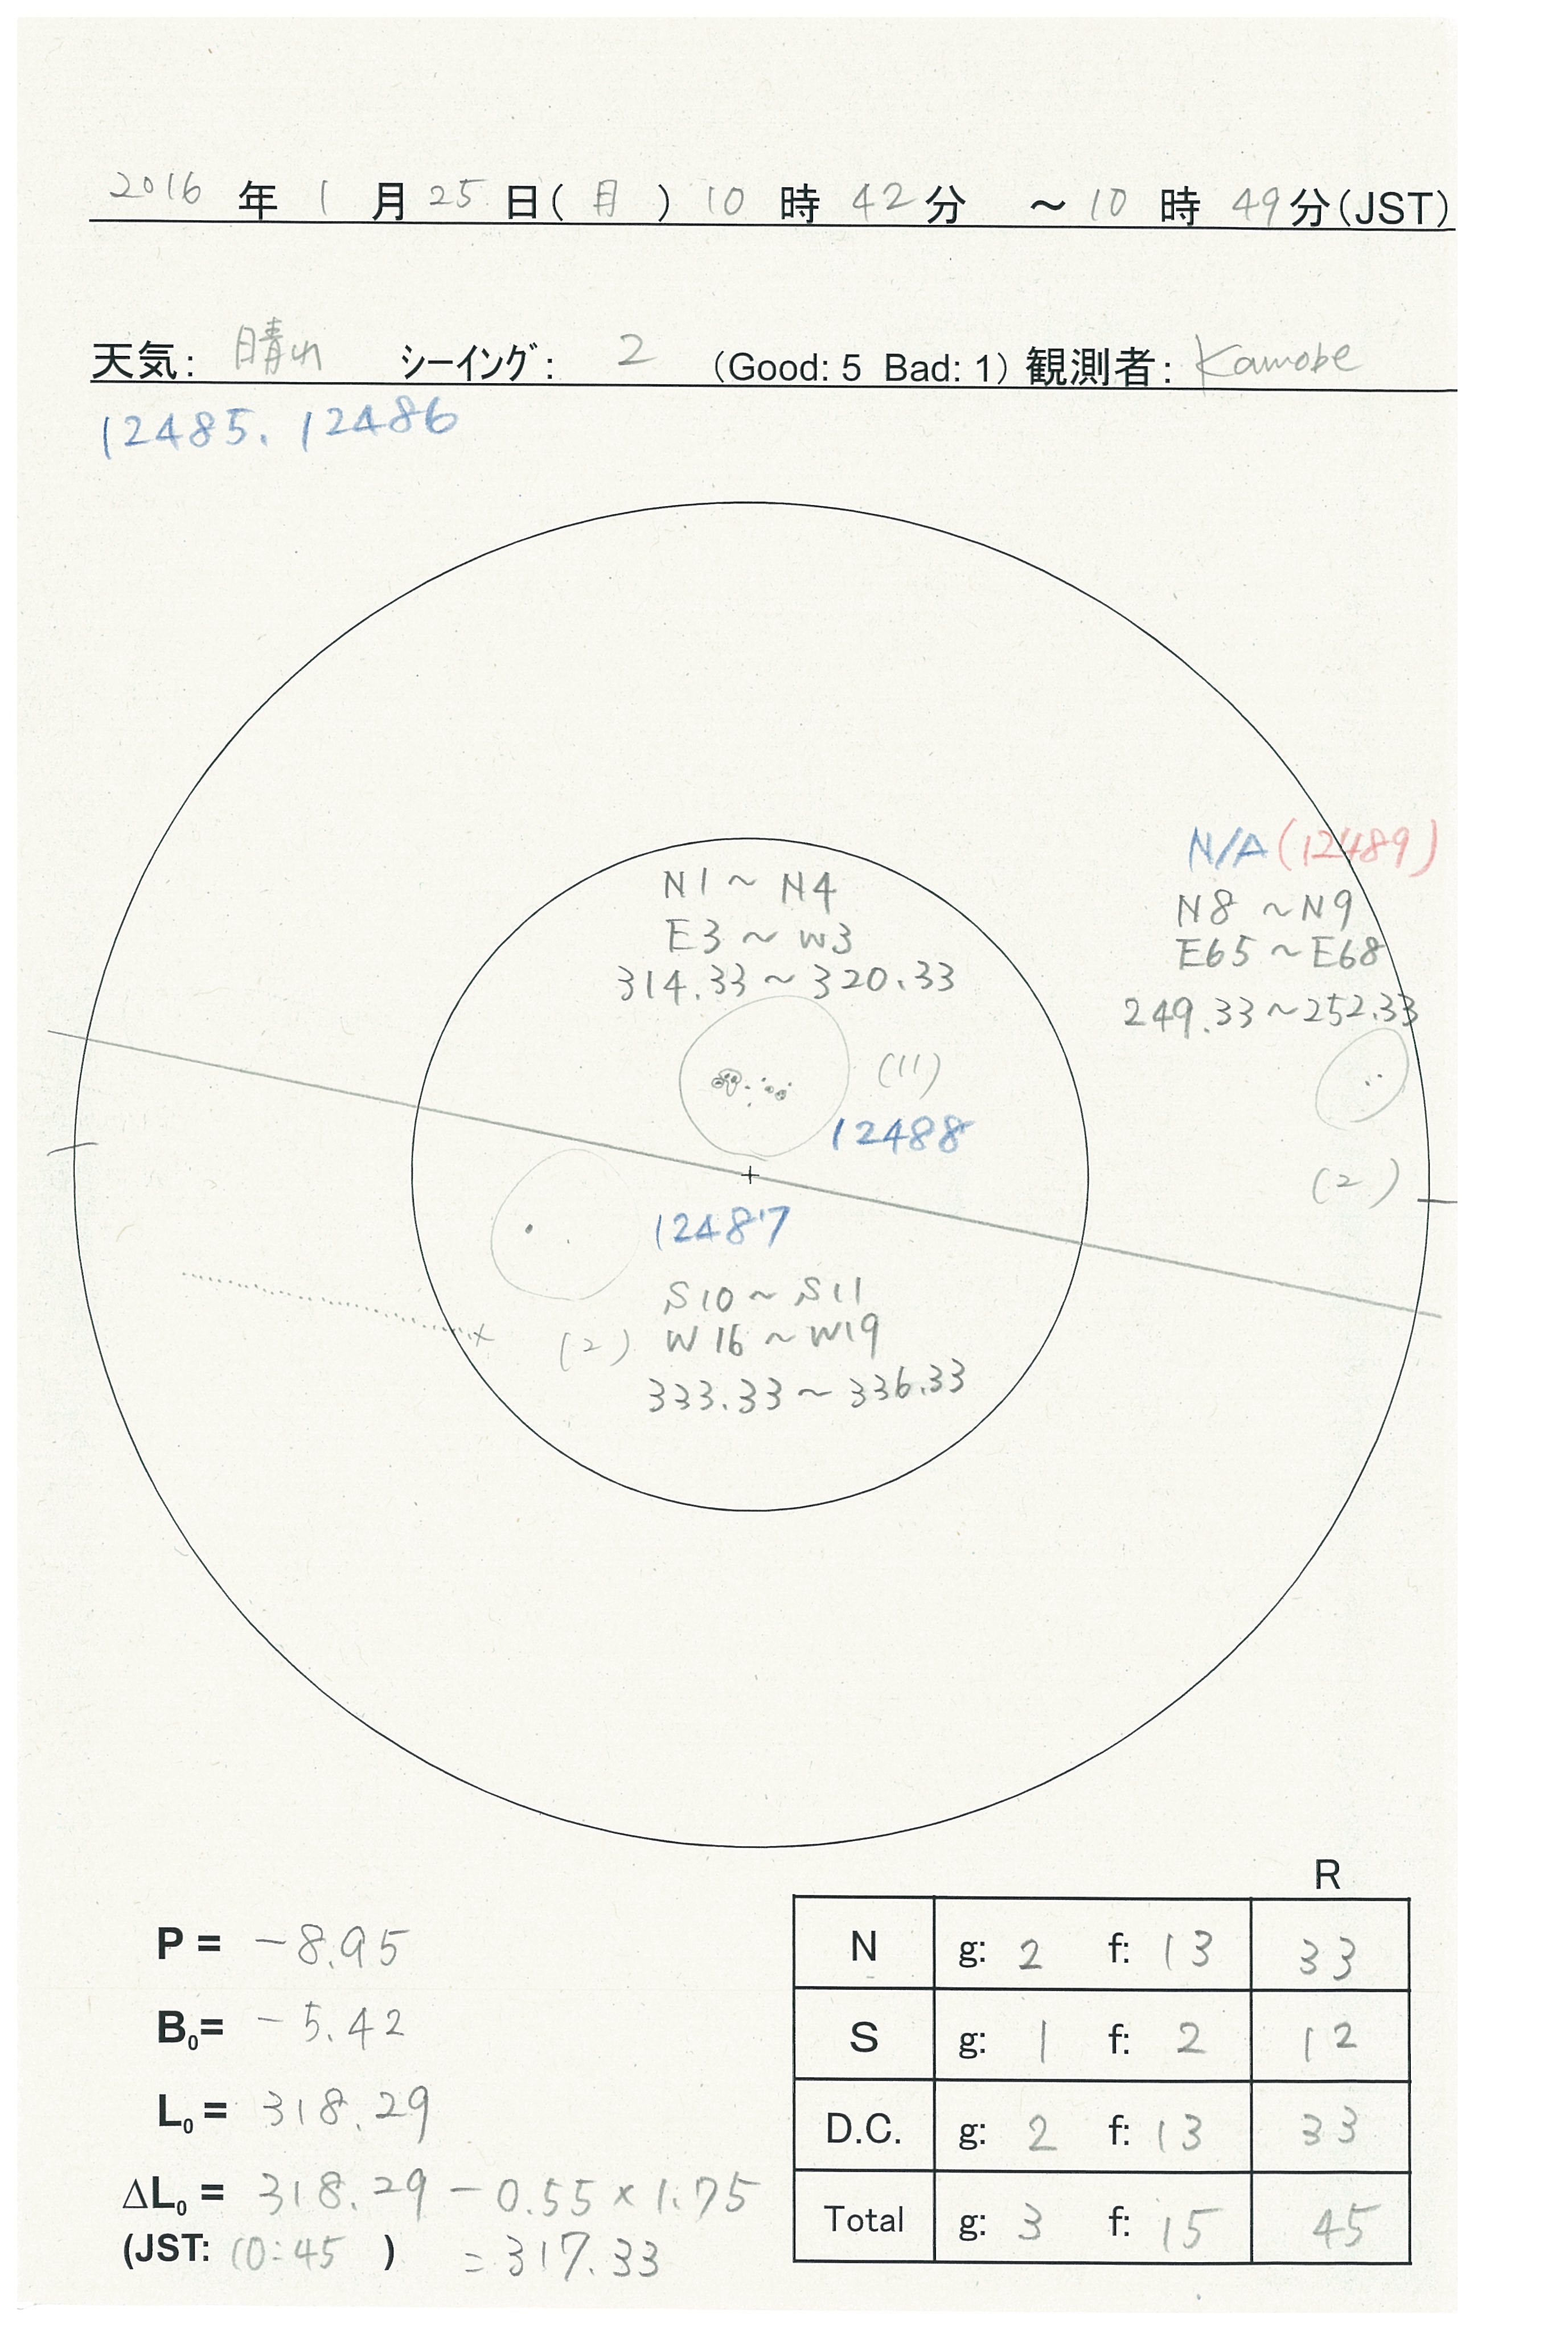 2016 年 1 月 25 日(月) 10 時 42 分 ～ 10 時 49 分(JST)
天気: 晴れ シーイング: 2 (Good: 5 Bad: 1) 観測者: Kamobe
12485. 12486
N/A (12489)
N8 ~ N9
E65 ~ E68
249.33 ~ 252.33
(2)
N1 ~ N4
E3 ~ W3
314.33 ~ 320.33
(11)
12488
12487
S10 ~ S11
(2) W16 ~ W19
333.33 ~ 336.33
P = -8.95
B0= -5.42
L0 = 318.29
ΔL0 = 318.29 - 0.55 × 1.75
(JST: 10:45 ) = 317.33
R
N g: 2 f: 13 33
S g: 1 f: 2 12
D.C. g: 2 f: 13 33
Total g: 3 f: 15 45